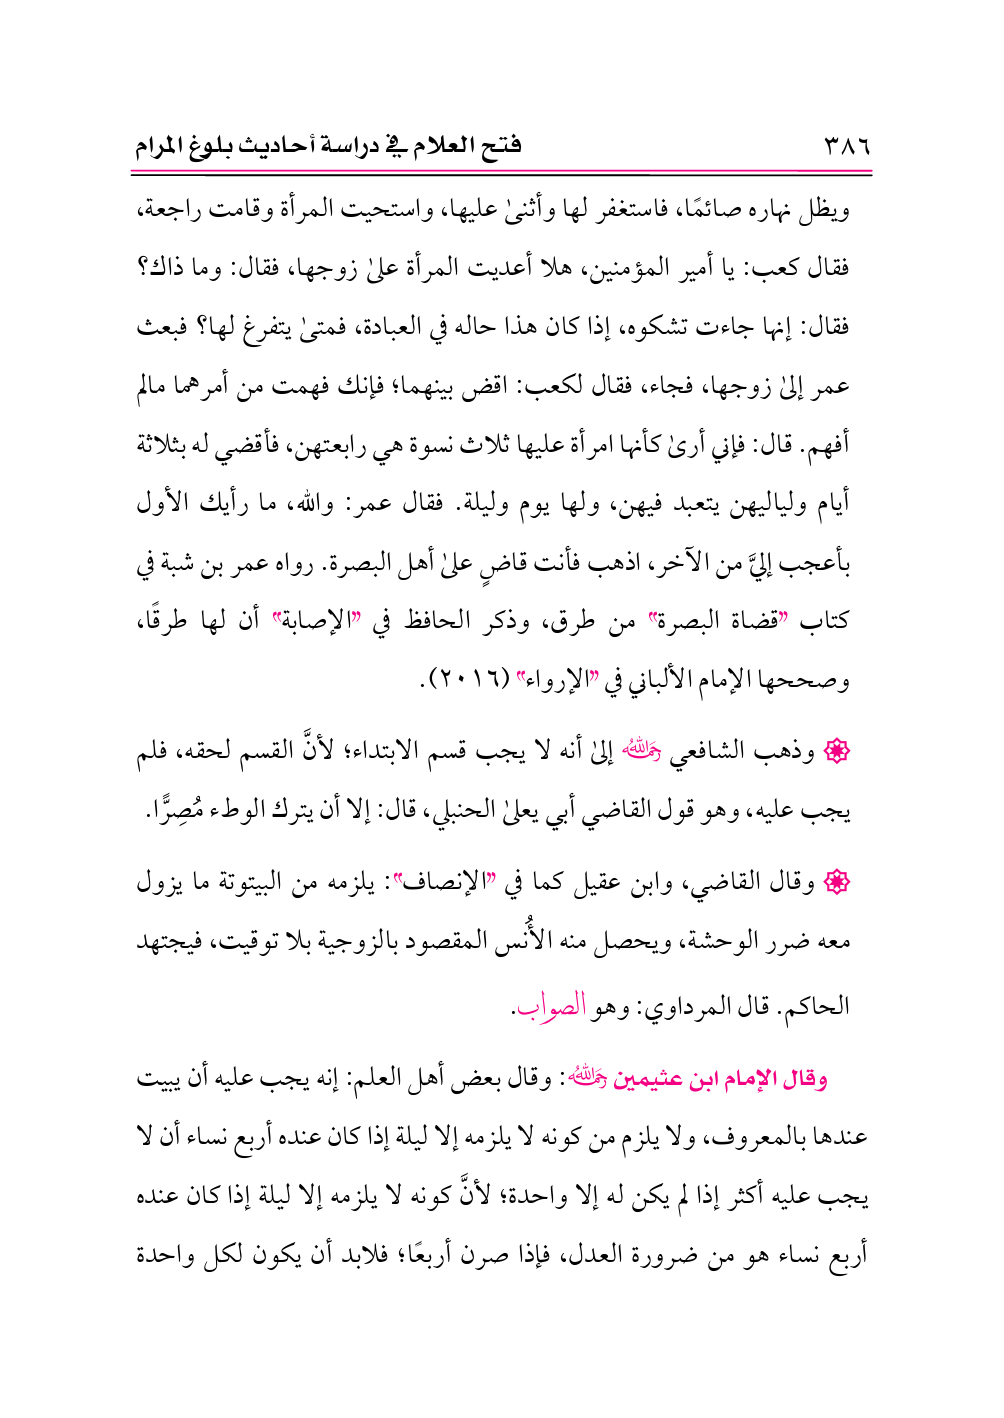 ٣٨٦ فتح العلام في دراسة أحاديث بلوغ المرام
ويظل نهاره صائمًا، فاستغفر لها وأثنىٰ عليها، واستحيت المرأة وقامت راجعة،
فقال كعب: يا أمير المؤمنين، هلا أعديت المرأة علىٰ زوجها، فقال: وما ذاك؟
فقال: إنها جاءت تشكوه، إذا كان هذا حاله في العبادة، فمتىٰ يتفرغ لها؟ فبعث
عمر إلىٰ زوجها، فجاء، فقال لكعب: اقض بينهما؛ فإنك فهمت من أمرهما مالم
أفهم. قال: فإني أرىٰ كأنها امرأة عليها ثلاث نسوة هي رابعتهن، فأقضي له بثلاثة
أيام ولياليهن يتعبد فيهن، ولها يوم وليلة. فقال عمر: والله، ما رأيك الأول
بأعجب إليَّ من الآخر، اذهب فأنت قاضٍ علىٰ أهل البصرة. رواه عمر بن شبة في
كتاب ”قضاة البصرة“ من طرق، وذكر الحافظ في ”الإصابة“ أن لها طرقًا،
وصححها الإمام الألباني في ”الإرواء“ (٢٠١٦).
وذهب الشافعي رحمه الله إلىٰ أنه لا يجب قسم الابتداء؛ لأنَّ القسم لحقه، فلم
يجب عليه، وهو قول القاضي أبي يعلىٰ الحنبلي، قال: إلا أن يترك الوطء مُصِرًّا.
وقال القاضي، وابن عقيل كما في ”الإنصاف“: يلزمه من البيتوتة ما يزول
معه ضرر الوحشة، ويحصل منه الأُنس المقصود بالزوجية بلا توقيت، فيجتهد
الحاكم. قال المرداوي: وهو الصواب.
وقال الإمام ابن عثيمين رحمه الله: وقال بعض أهل العلم: إنه يجب عليه أن يبيت
عندها بالمعروف، ولا يلزم من كونه لا يلزمه إلا ليلة إذا كان عنده أربع نساء أن لا
يجب عليه أكثر إذا لم يكن له إلا واحدة؛ لأنَّ كونه لا يلزمه إلا ليلة إذا كان عنده
أربع نساء هو من ضرورة العدل، فإذا صرن أربعًا؛ فلابد أن يكون لكل واحدة